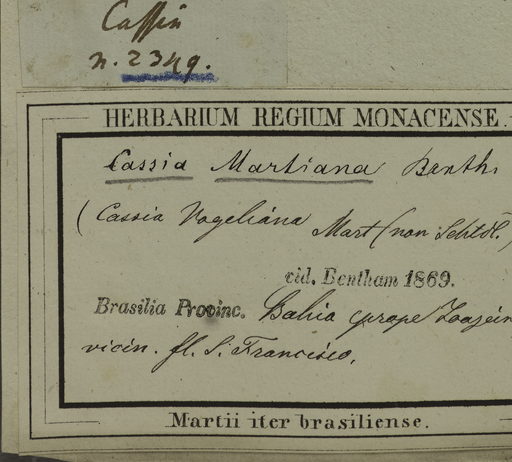 Cassia
n. 2349.
HERBARIUM REGIUM MONACENSE.
Cassia Martiana Benth.
(Cassia Vogeliána Mart (non Schtdl.)
vid. Bentham 1869.
Brasilia Provinc. Bahia prope
vicin. fl. S. Francisco.
Martii iter brasiliense.